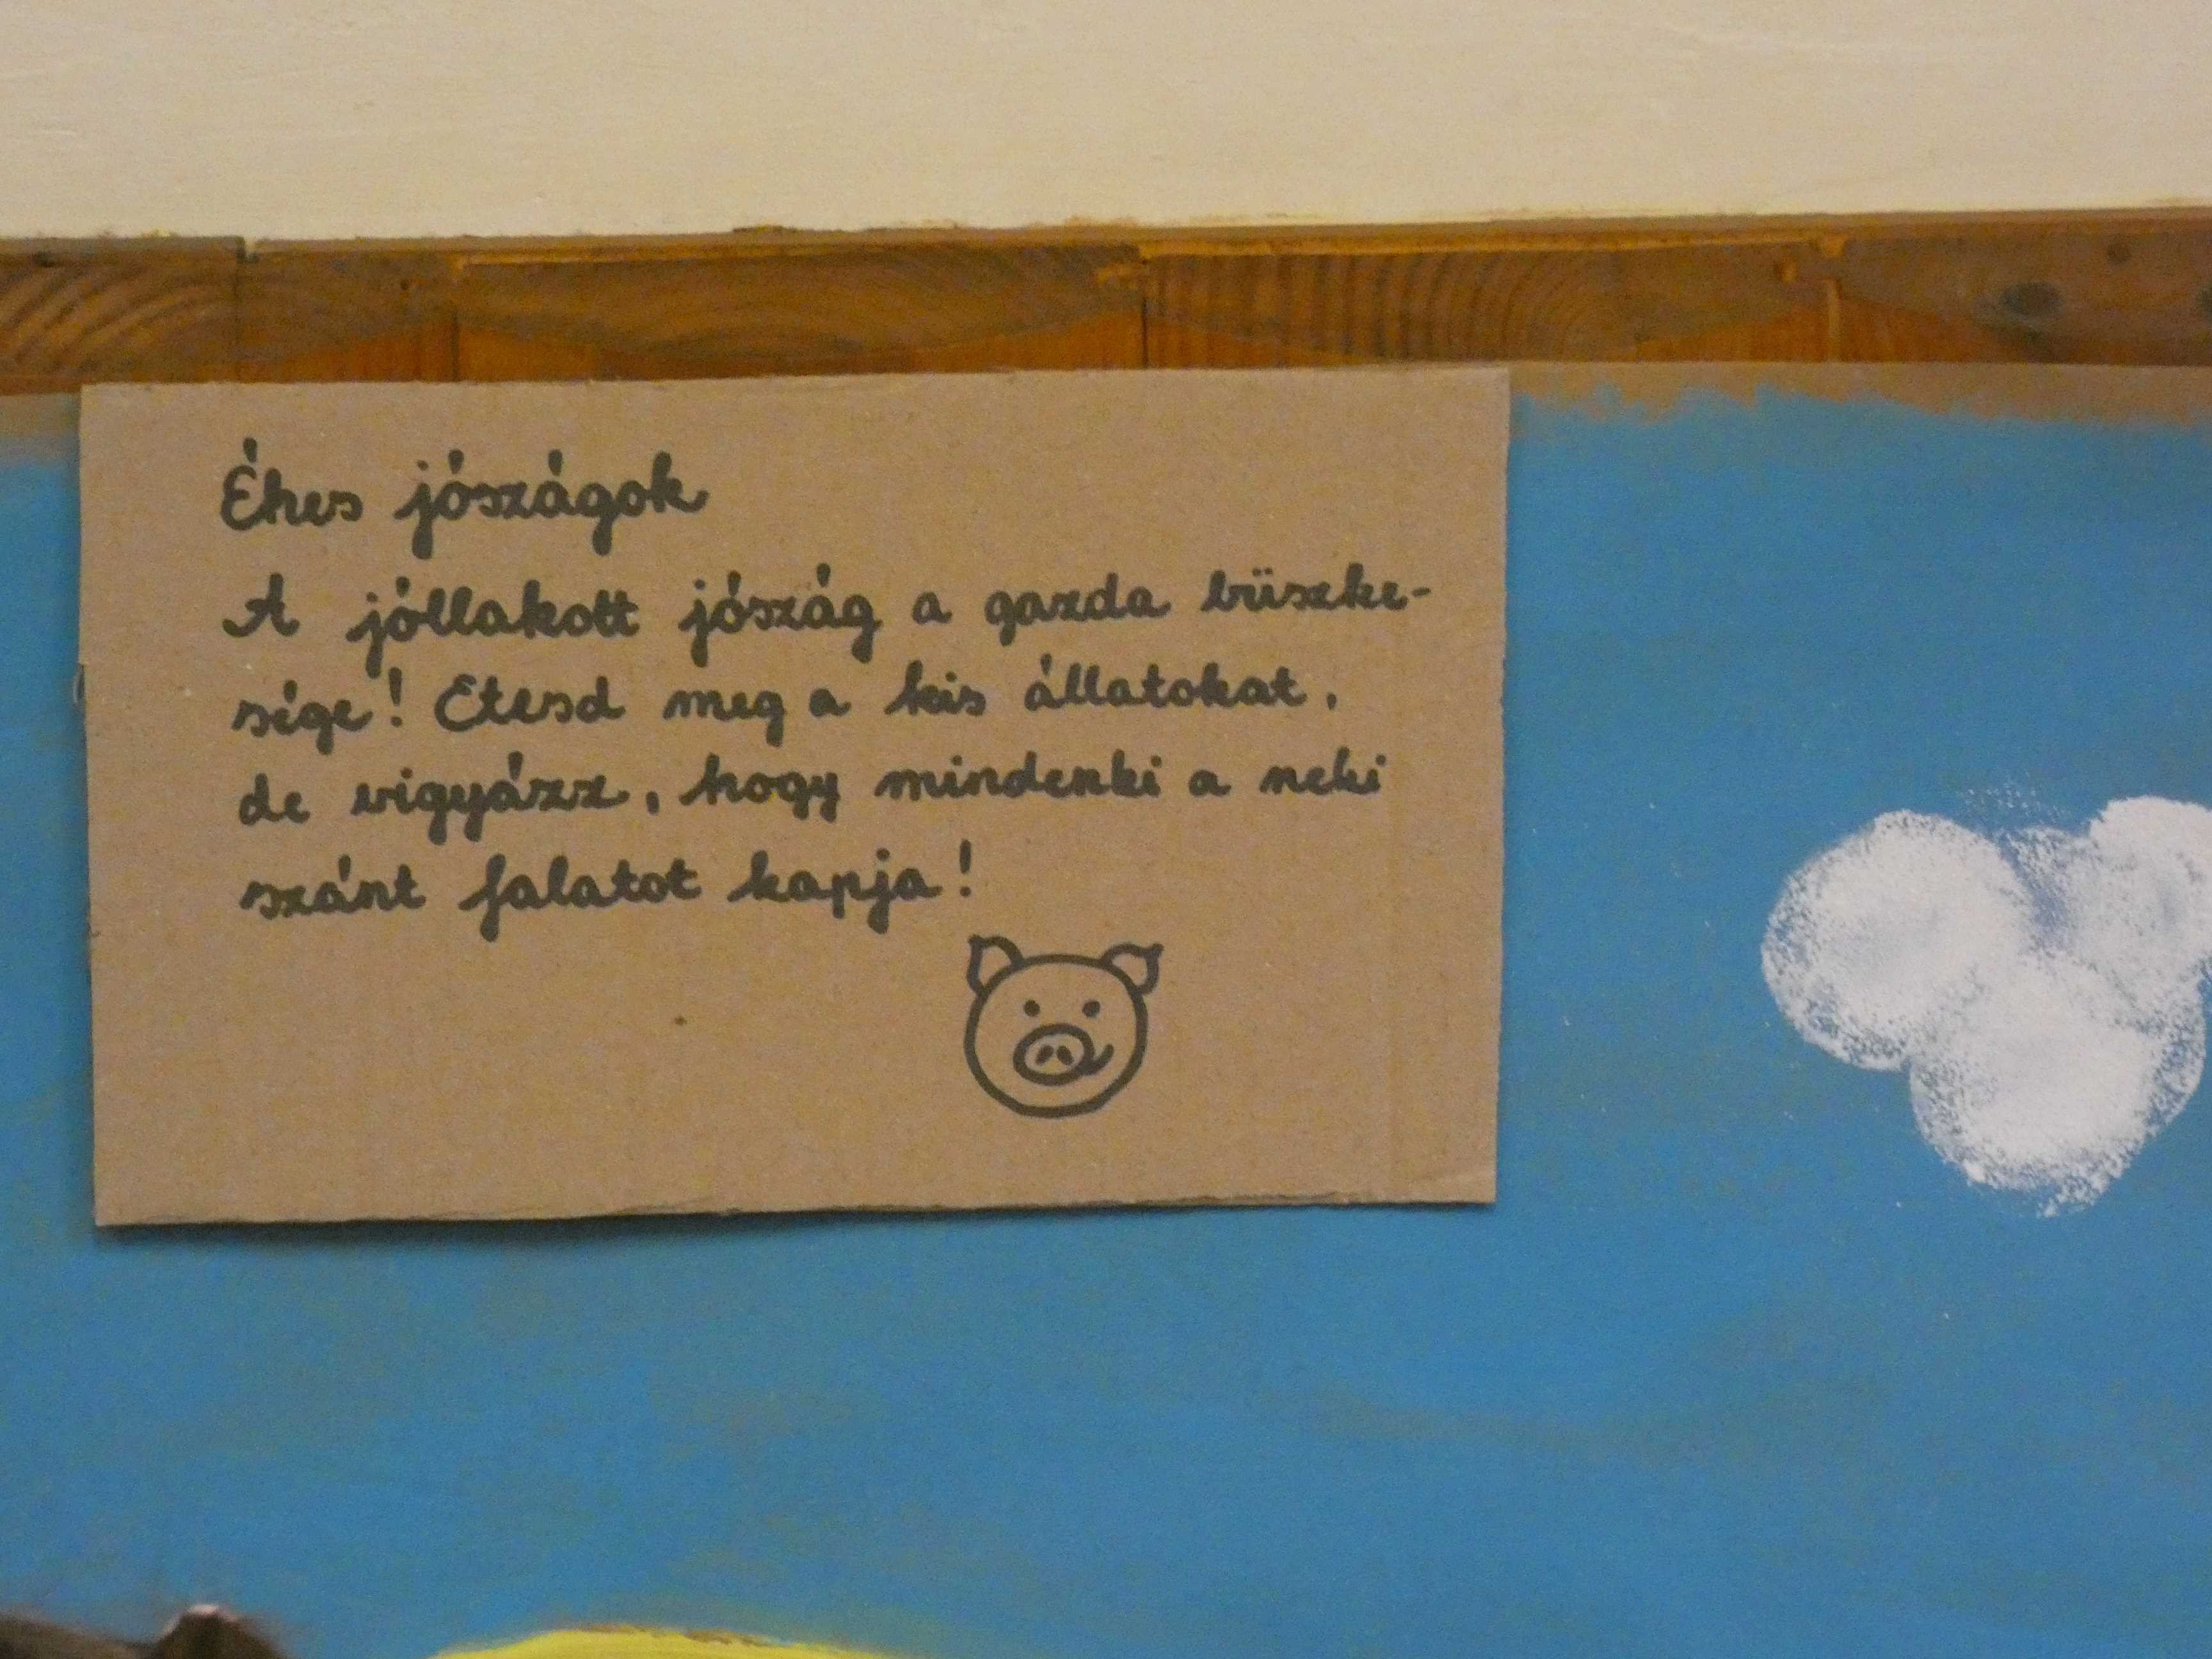 Éhes jószágok
A jóllakott jószág a gazda büszke-
sége! Etesd meg a kis állatokat,
de vigyázz, hogy mindenki a neki
szánt falatot kapja!